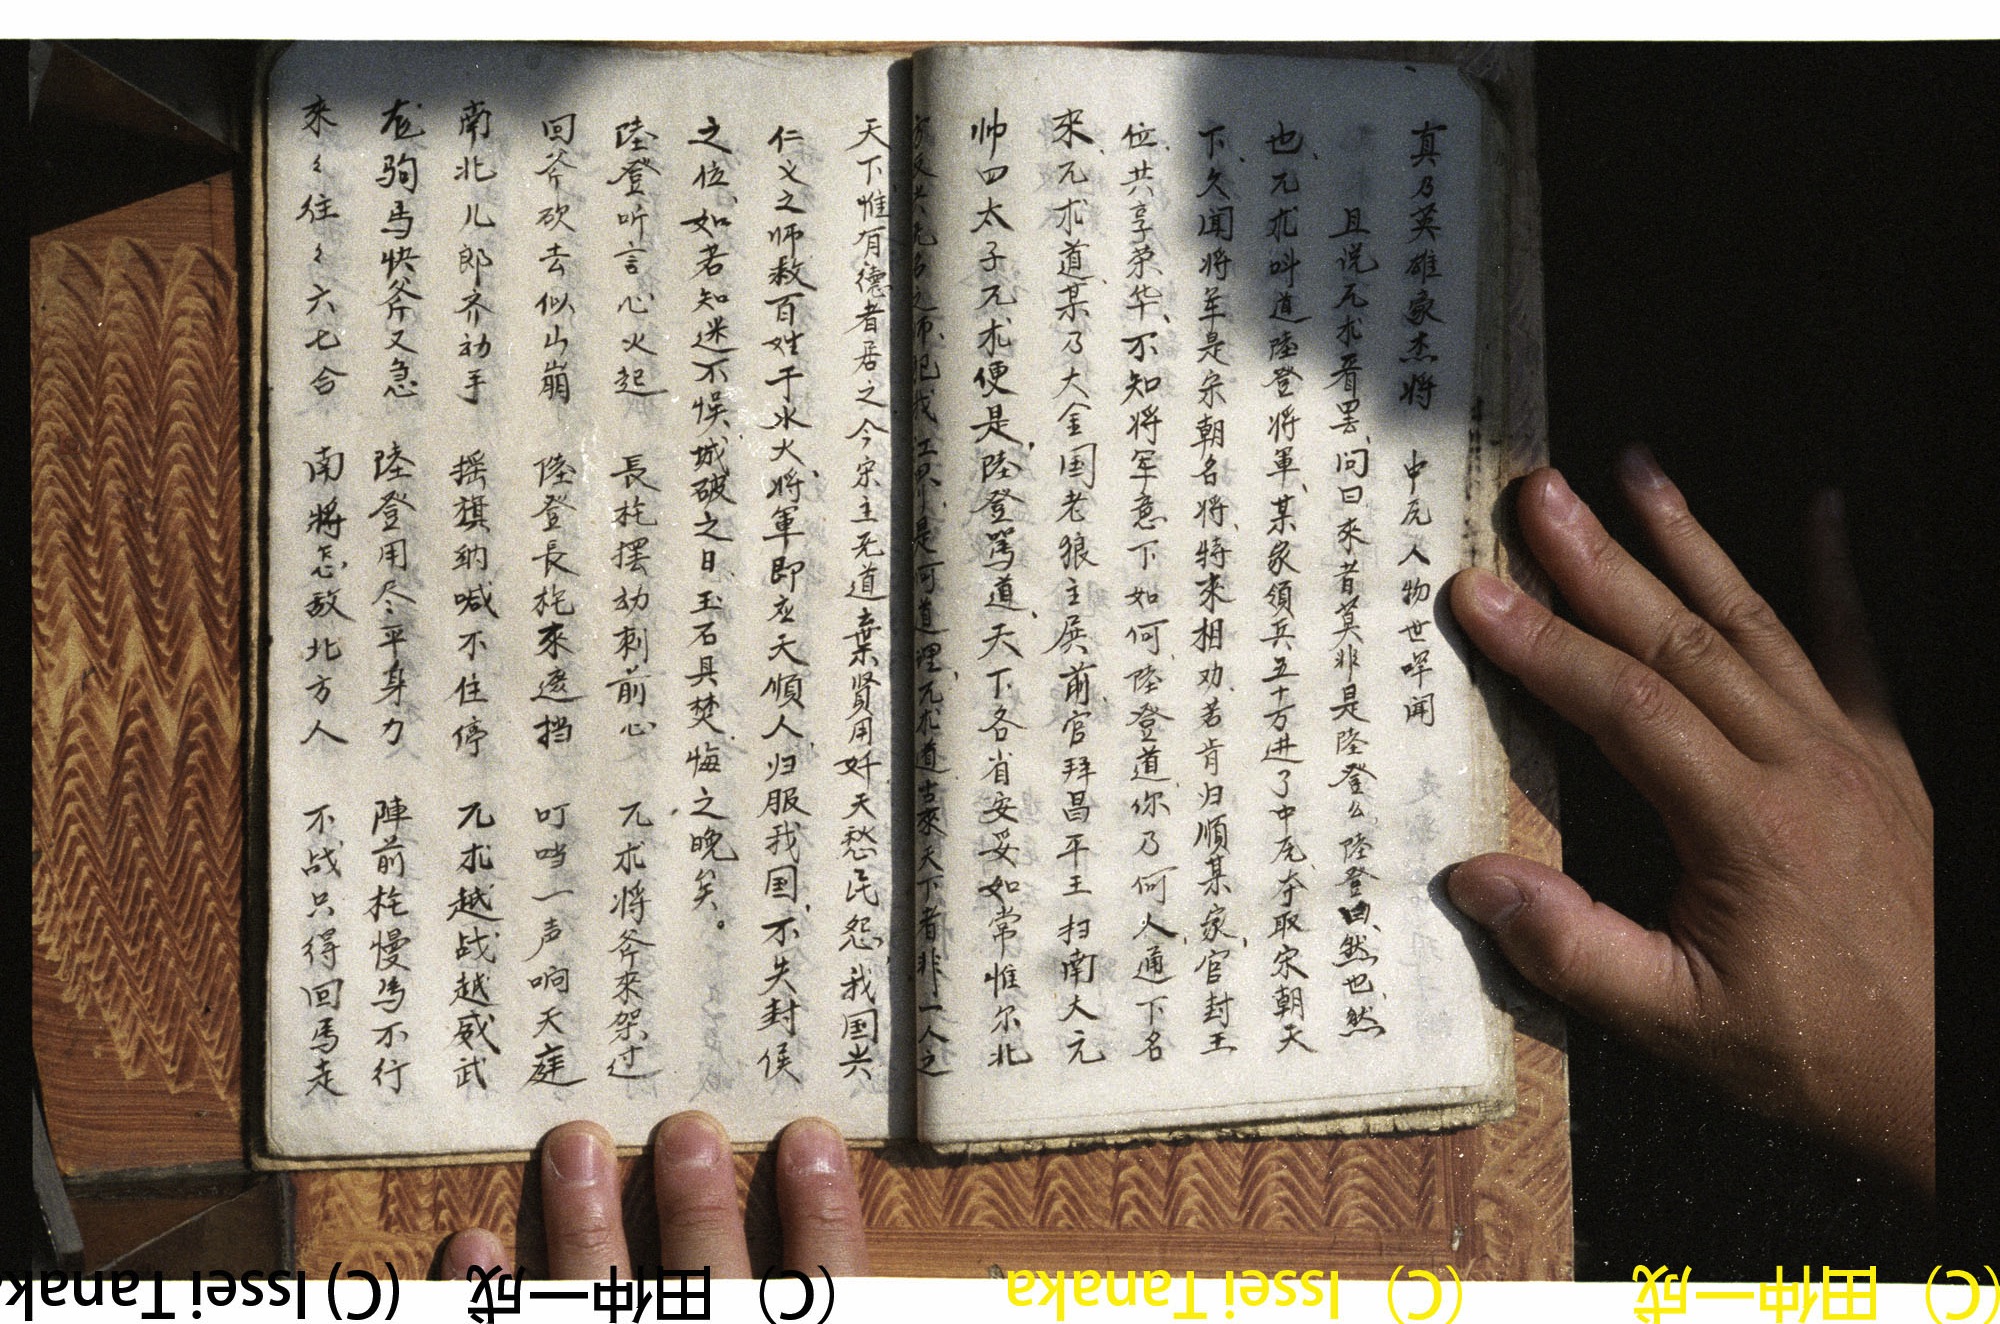 真乃英雄豪杰将　中元人物世罕闻
且说兀朮看罢、问曰来者莫非是陸登么、陸登曰、然也、然
也、兀朮叫道陸登将軍、某家領兵五十万进了中元、夺取宋朝天
下、久闻将军是宋朝名将、特來相劝、若肯归順某家、官封王
位、共享荣华、不知将军意下如何、陸登道、你乃何人、通下名
來、兀朮道、某乃大金国老狼主殿前官拜昌平王扫南大元
帅四太子兀朮便是、陸登骂道、天下各省安妥如常惟尔北
是何道理、兀朮道古來天下者非一人之
天下惟有德者居之今宋主无道棄贤用奸天愁民怨、我国兴
仁义之师救百姓于水火、将軍即应天順人、归服我国、不失封侯
之位、如若知迷不悮、城破之日、玉石具焚、悔之晚矣。
陸登听言心火起　長枪摆动刺前心　兀朮将斧來架过
回斧砍去似山崩　陸登長枪來遮挡　叮噹一声响天庭
南北儿郎齐动手　摇旗纳喊不住停　兀朮越战越威武
龙驹马快斧又急　陸登用尽平身力　陣前枪慢马不行
來々往々六七合　南將怎敌北方人　不战只得回馬走
(C) Issei Tanaka (C) 田仲一成
(C) Issei Tanaka (C) 田仲一成